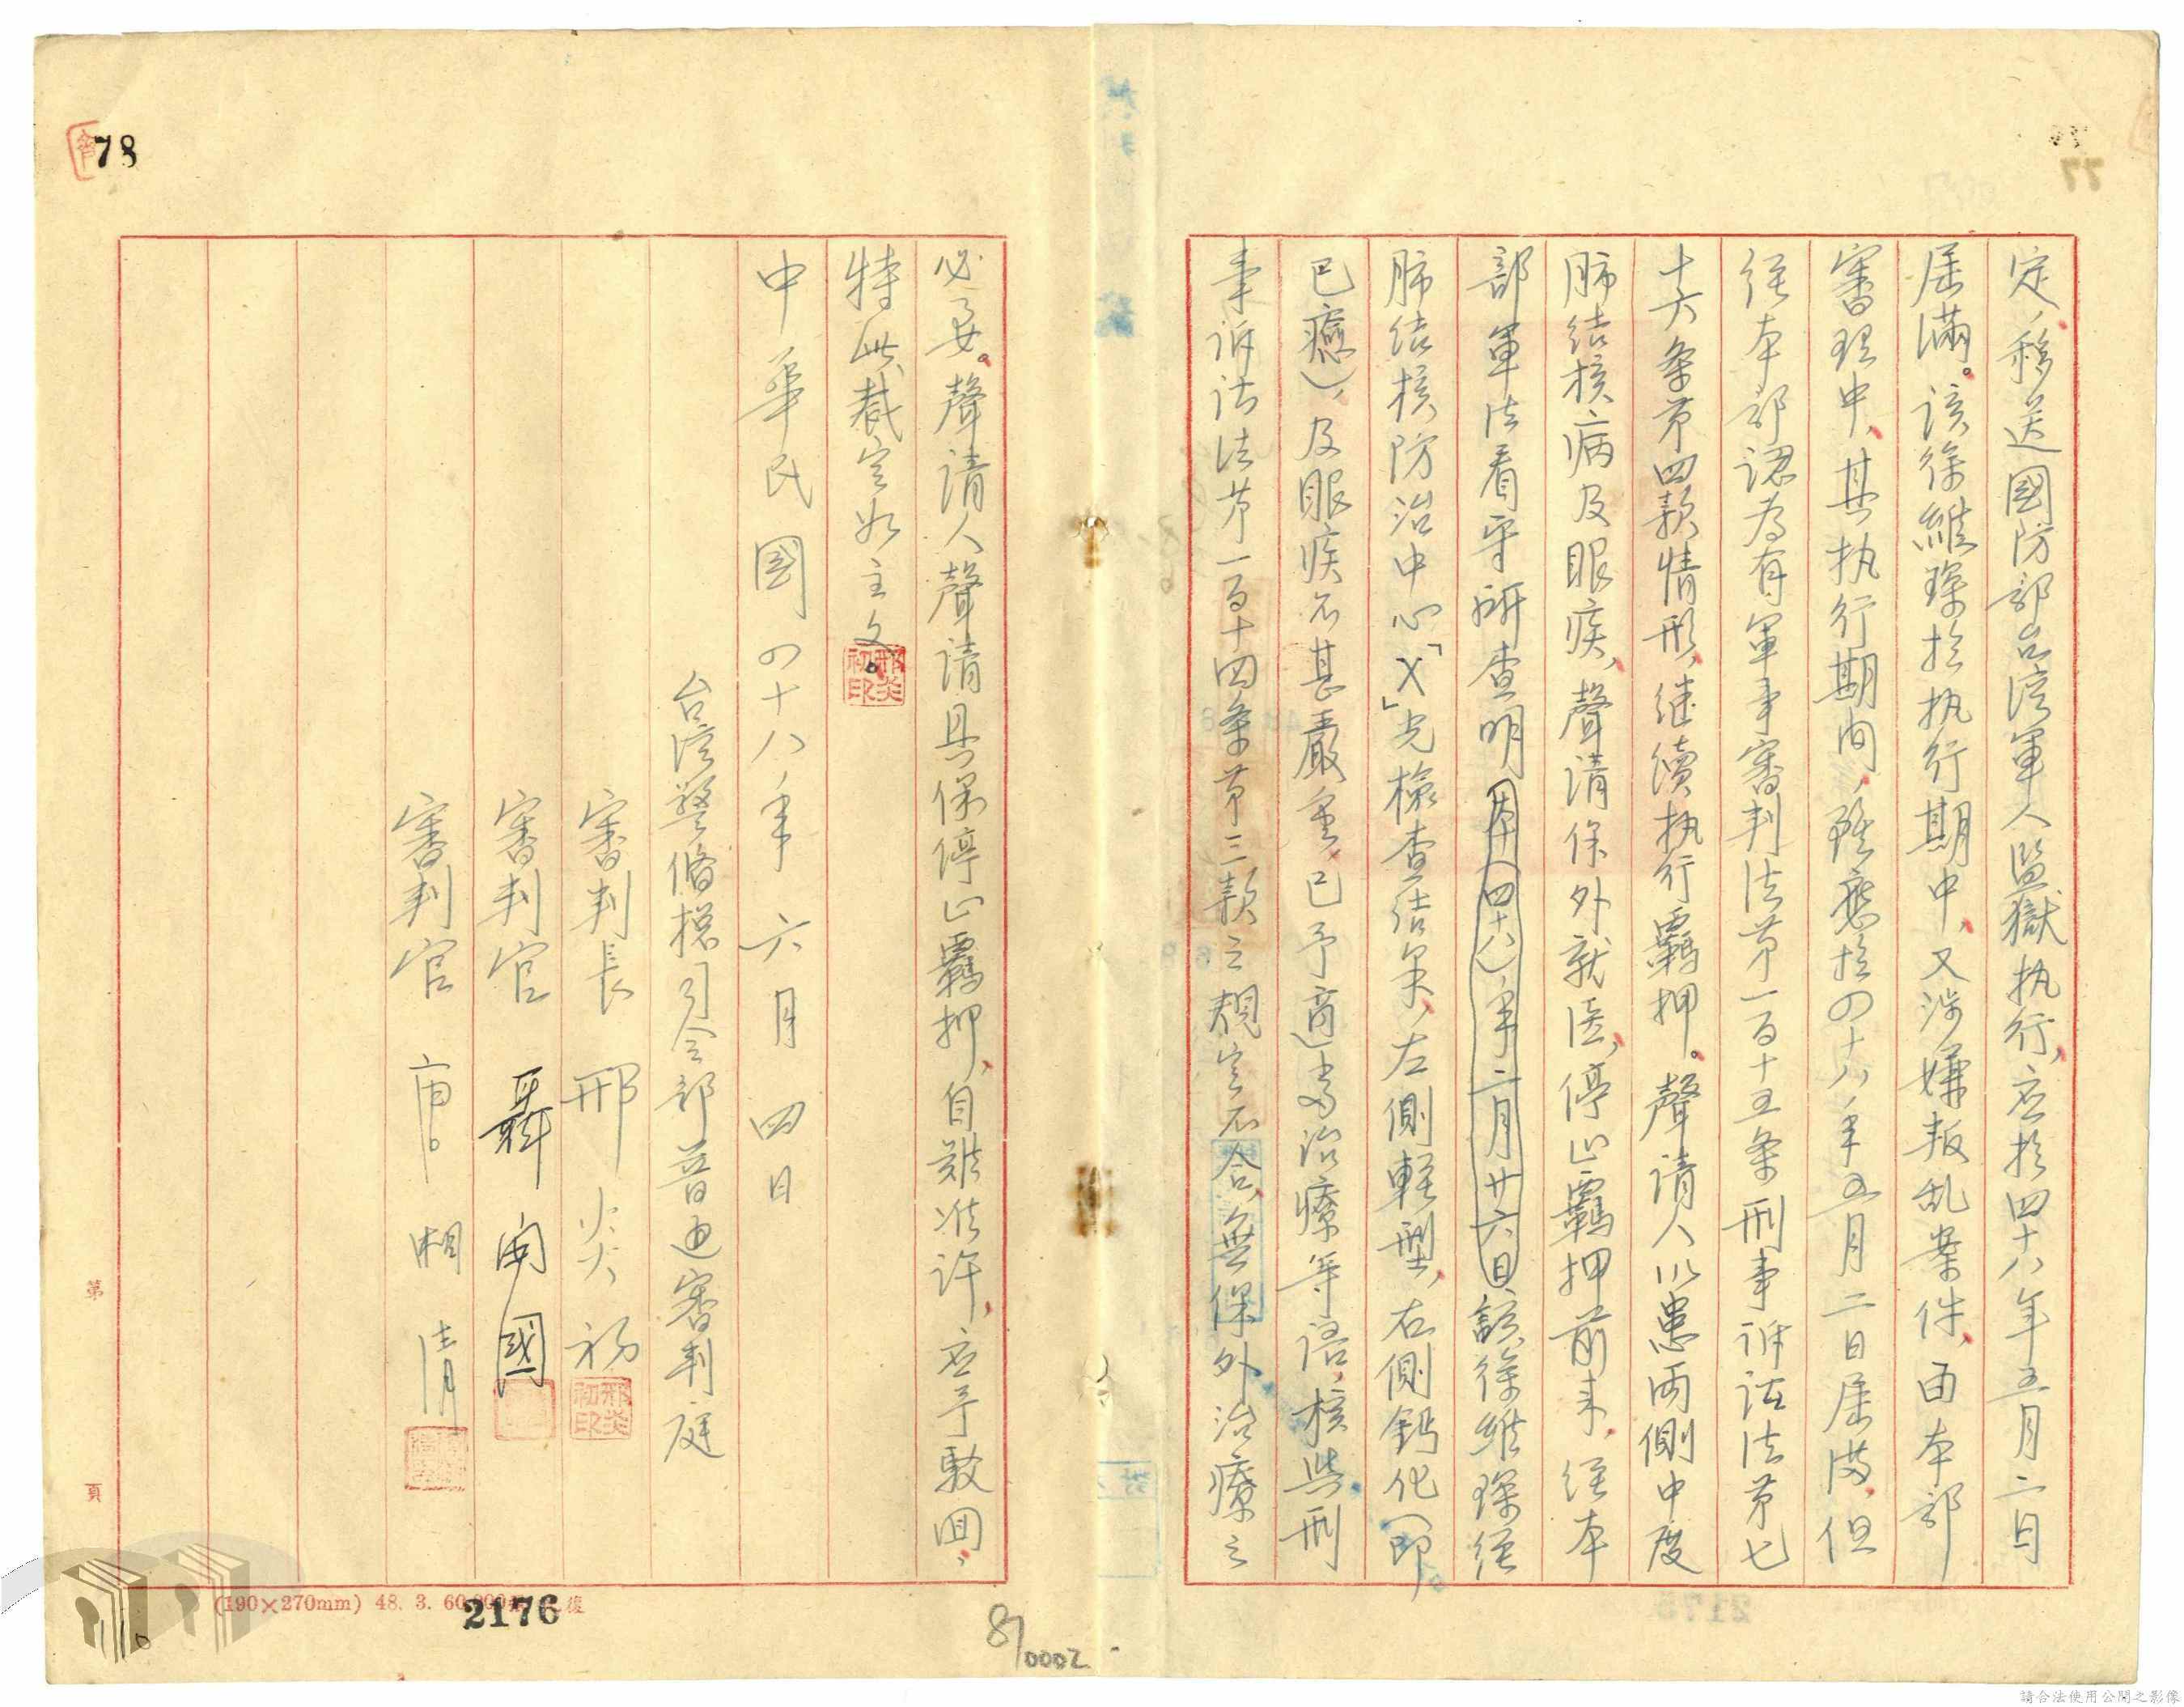 定，移送國防部台湾軍人監獄执行，应於四十八年五月二日
屆滿。該徐維琛於执行期中，又涉嫌叛乱案件，由本部
審理中，其执行期间，雖應於四十八年五月二日屆满，但
经本部認为有軍事審判法第一百十五条刑事訴訟法第七
十六条第四款情形，继續执行羈押。聲請人以患两側中度
肺结核病及眼疾，聲請保外就医，停止羈押前来，经本
部軍法看守所查明（四十八）年二月廿六日該徐維琛经
肺结核防治中心「X」光檢查结果，左側輕型，右側鈣化（即
已癒），及眼疾不甚嚴重，已予適当治療等语，核与刑
事訴訟法第一百十四条第三款之規定不合，無保外治療之
必要。聲請人聲請具保停止羈押，自難准許，应予駁回，
特此裁定如主文。
邢炎初印
中華民國四十八年六月四日
台湾警備總司令部普通審判庭
審判長 邢炎初
邢炎初印
審判官 聶開國
審判官 唐湘清
78
77
第 頁
(190×270mm) 48. 3. 60,000
2176
87
0002
請合法使用公開之影像